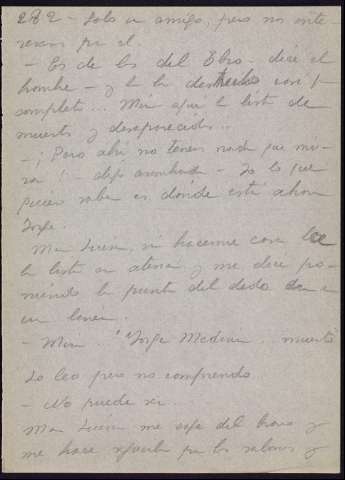 282 - Solo un amigo, pero nos inte-
resa por él.
- Es de los del Ebro - dice el
hombre - y la ha deshecho casi por
completo... Mira aquí la lista de
muertos y desaparecidos...
- ¡Pero ahí no tienes nada que mi-
rar! - digo asombrada - Yo lo que
quiero saber es dónde está ahora
Jorge.
sin hacerme caso lee
la lista con atención y me dice po-
niendo la punta del dedo en
una línea.
- Mira... "Jorge Medina... muerto
Lo leo pero no comprendo
- No puede ser...
me coge del brazo y
me hace por los salones y